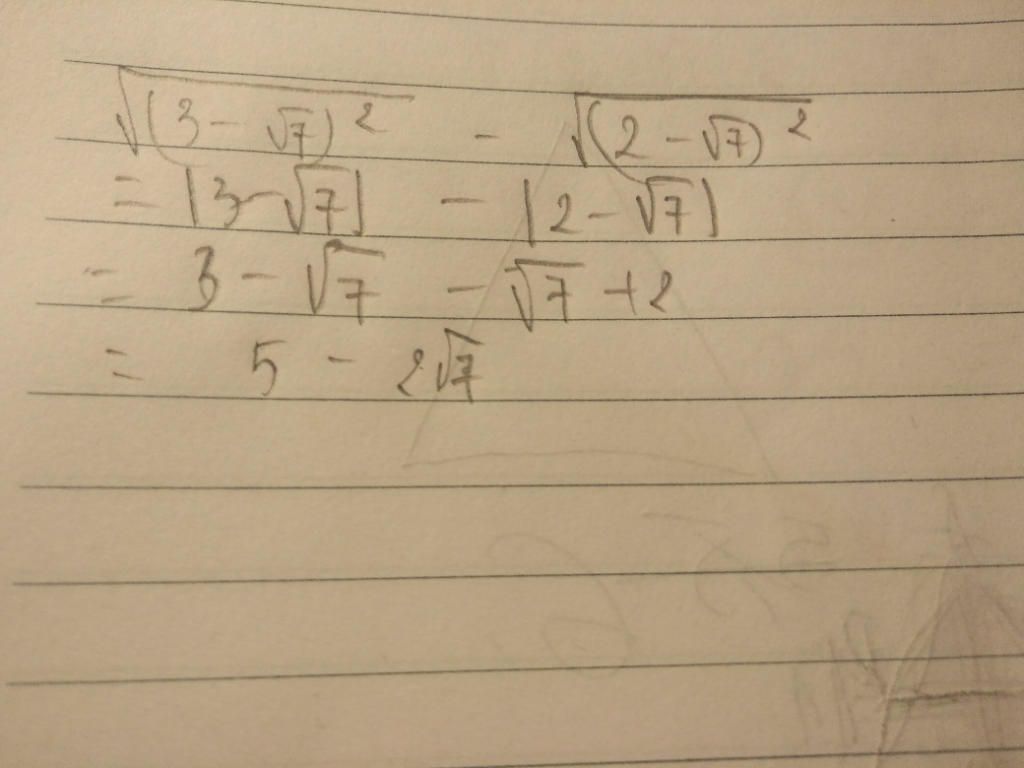 √(3 - √7)² - √(2 - √7)²
= |3 - √7| - |2 - √7|
= 3 - √7 - √7 + 2
= 5 - 2√7